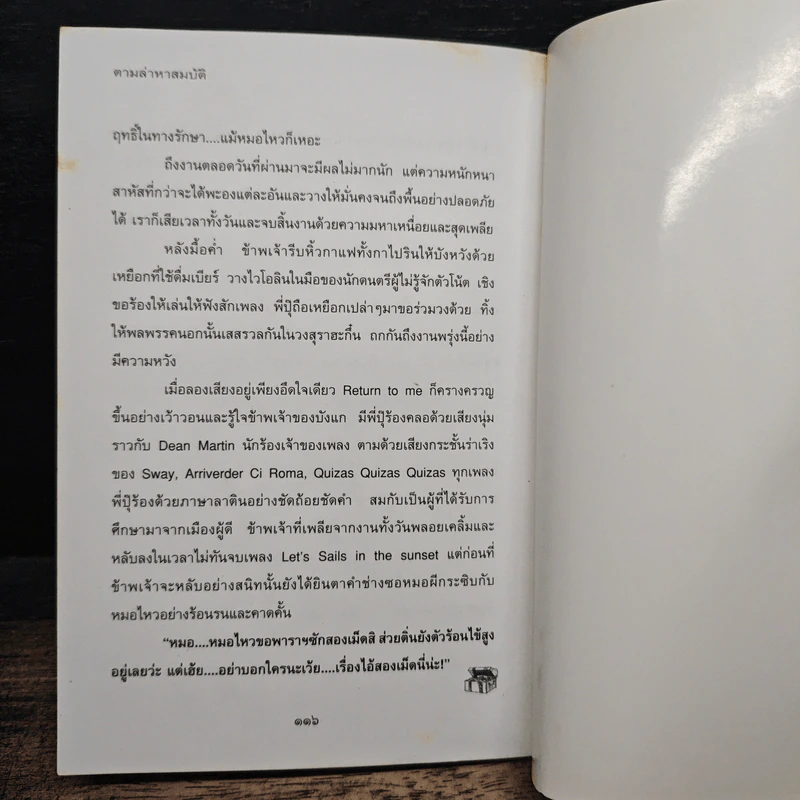 ตามล่าหาสมบัติ
ฤทธิ์ในทางรักษา....แม้หมอไหวก็เหอะ
ถึงงานตลอดวันที่ผ่านมาจะมีผลไม่มากนัก แต่ความหนักหนา
สาหัสที่กว่าจะได้พะองแต่ละอันและวางให้มั่นคงจนถึงพื้นอย่างปลอดภัย
ได้ เราก็เสียเวลาทั้งวันและจบสิ้นงานด้วยความมหาเหนื่อยและสุดเพลีย
หลังมื้อค่ำ ข้าพเจ้ารีบหิ้วกาแฟทั้งกาไปรินให้บังหวังด้วย
เหยือกที่ใช้ดื่มเบียร์ วางไวโอลินในมือของนักดนตรีผู้ไม่รู้จักตัวโน้ต เชิง
ขอร้องให้เล่นให้ฟังสักเพลง พี่ปุ๊ถือเหยือกเปล่าๆมาขอร่วมวงด้วย ทิ้ง
ให้พลพรรคนอกนั้นเสสรวลกันในวงสุราฮะกึ๋น ถกกันถึงงานพรุ่งนี้อย่าง
มีความหวัง
เมื่อลองเสียงอยู่เพียงอึดใจเดียว Return to me ก็ครางครวญ
ขึ้นอย่างเว้าวอนและรู้ใจข้าพเจ้าของบังแก มีพี่ปุ๊ร้องคลอด้วยเสียงนุ่ม
ราวกับ Dean Martin นักร้องเจ้าของเพลง ตามด้วยเสียงกระชั้นร่าเริง
ของ Sway, Arriverder Ci Roma, Quizas Quizas Quizas ทุกเพลง
พี่ปุ๊ร้องด้วยภาษาลาตินอย่างชัดถ้อยชัดคำ สมกับเป็นผู้ที่ได้รับการ
ศึกษามาจากเมืองผู้ดี ข้าพเจ้าที่เพลียจากงานทั้งวันพลอยเคลิ้มและ
หลับลงในเวลาไม่ทันจบเพลง Let's Sails in the sunset แต่ก่อนที่
ข้าพเจ้าจะหลับอย่างสนิทนั้นยังได้ยินตาคำช่างซอหมอผีกระซิบกับ
หมอไหวอย่างร้อนรนและคาดคั้น
“หมอ....หมอไหวขอพาราฯซักสองเม็ดสิ ส่วยตื่นยังตัวร้อนไข้สูง
อยู่เลยว่ะ แต่เฮ้ย....อย่าบอกใครนะเว้ย....เรื่องไอ้สองเม็ดนี่น่ะ!”
๑๑๖